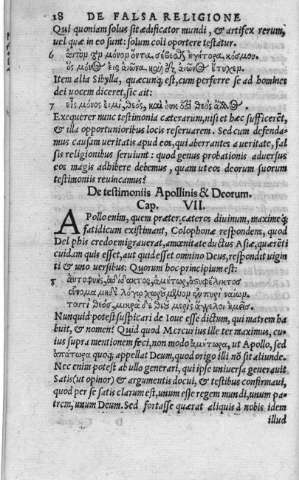 18 DE FALSA RELIGIONE
Qui quoniam solus sit ædificator mundi, & artifex rerum,
uel quæ in eo sunt: solum coli oportere testatur.
6
Item alia Sibylla, quæcunq; est, cum perferre se ad homines
dei uocem diceret, sic ait:
7
Exequerer nunc testimonia cæterarum, nisi et hæc sufficerẽt,
& illa opportunioribus locis reseruarem. Sed cum defenda-
mus causam ueritatis apud eos, qui aberrantes a ueritate, fal
sis religionibus seruiunt: quod genus probationis aduersus
eos magis adhibere debemus, quam ut eos deorum suorum
testimonijs reuincamus?
De testimoniis Apollinis & Deorum.
Cap. VII.
APollo enim, quem præter cæteros diuinum, maximeq;
fatidicum existimant, Colophone respondens, quod
Delphis credo emigrauerat, amœnitate ductus Asiæ, quærẽti
cuidam quis esset, aut quid esset omnino Deus, respondit uigin
ti & uno uersibus: Quorum hoc principium est:
Nunquid potest suspicari de Ioue esse dictum, qui matrem ha
buit, & nomen? Quid quod Mercurius ille ter maximus, cu-
ius supra mentionem feci, non modo ἀμήτωρα, ut Apollo, sed
ἀπάτωρα quoq; appellat Deum, quod origo illi nõ sit aliunde.
Nec enim potest ab ullo generari, qui ipse uniuersa generauit.
Satis (ut opinor) & argumentis docui, & testibus confirmaui,
quod per se satis clarum est, unum esse regem mundi, unum pa-
trem, unum Deum. Sed fortasse quærat aliquis à nobis idem
illud